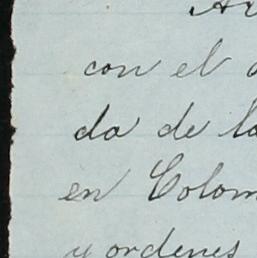 con el
da de la
en Colom
y ordenes